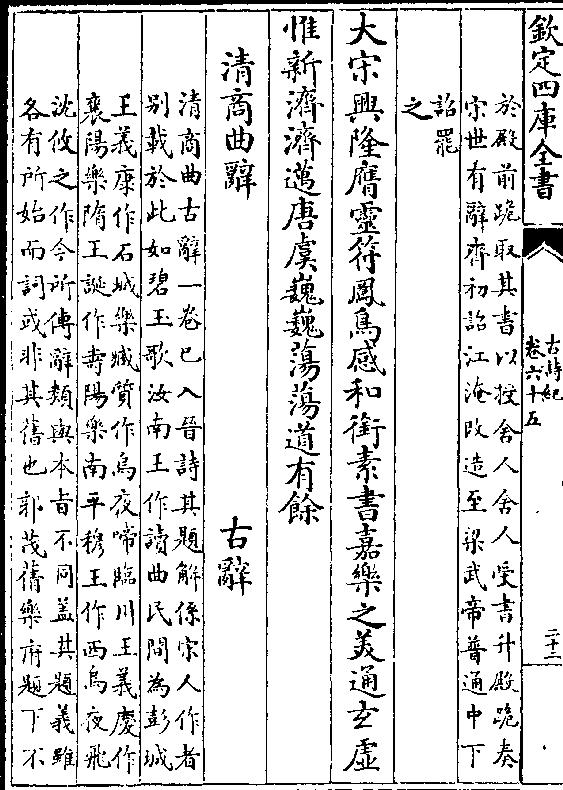 欽定四庫全書
古詩紀
卷六十五
二十三
於殿前跪取其書以授舍人舍人受書升殿跪奏
宋世有辭齊初詔江淹改造至梁武帝普通中下
詔罷
之
大宋興隆膺靈符鳳鳥感和銜素書嘉樂之美通玄虛
惟新濟濟邁唐虞巍巍蕩蕩道有餘
清商曲辭　古辭
清商曲古辭一卷已入晉詩其題解係宋人作者
别載於此如碧玉歌汝南王作讀曲民間為彭城
王義康作石城樂臧質作烏夜啼臨川王義慶作
襄陽樂隋王誕作壽陽樂南平穆王作西烏夜飛
沈攸之作今所傳辭類與本旨不同蓋其題義雖
各有所始而詞或非其舊也郭茂蒨樂府題下不